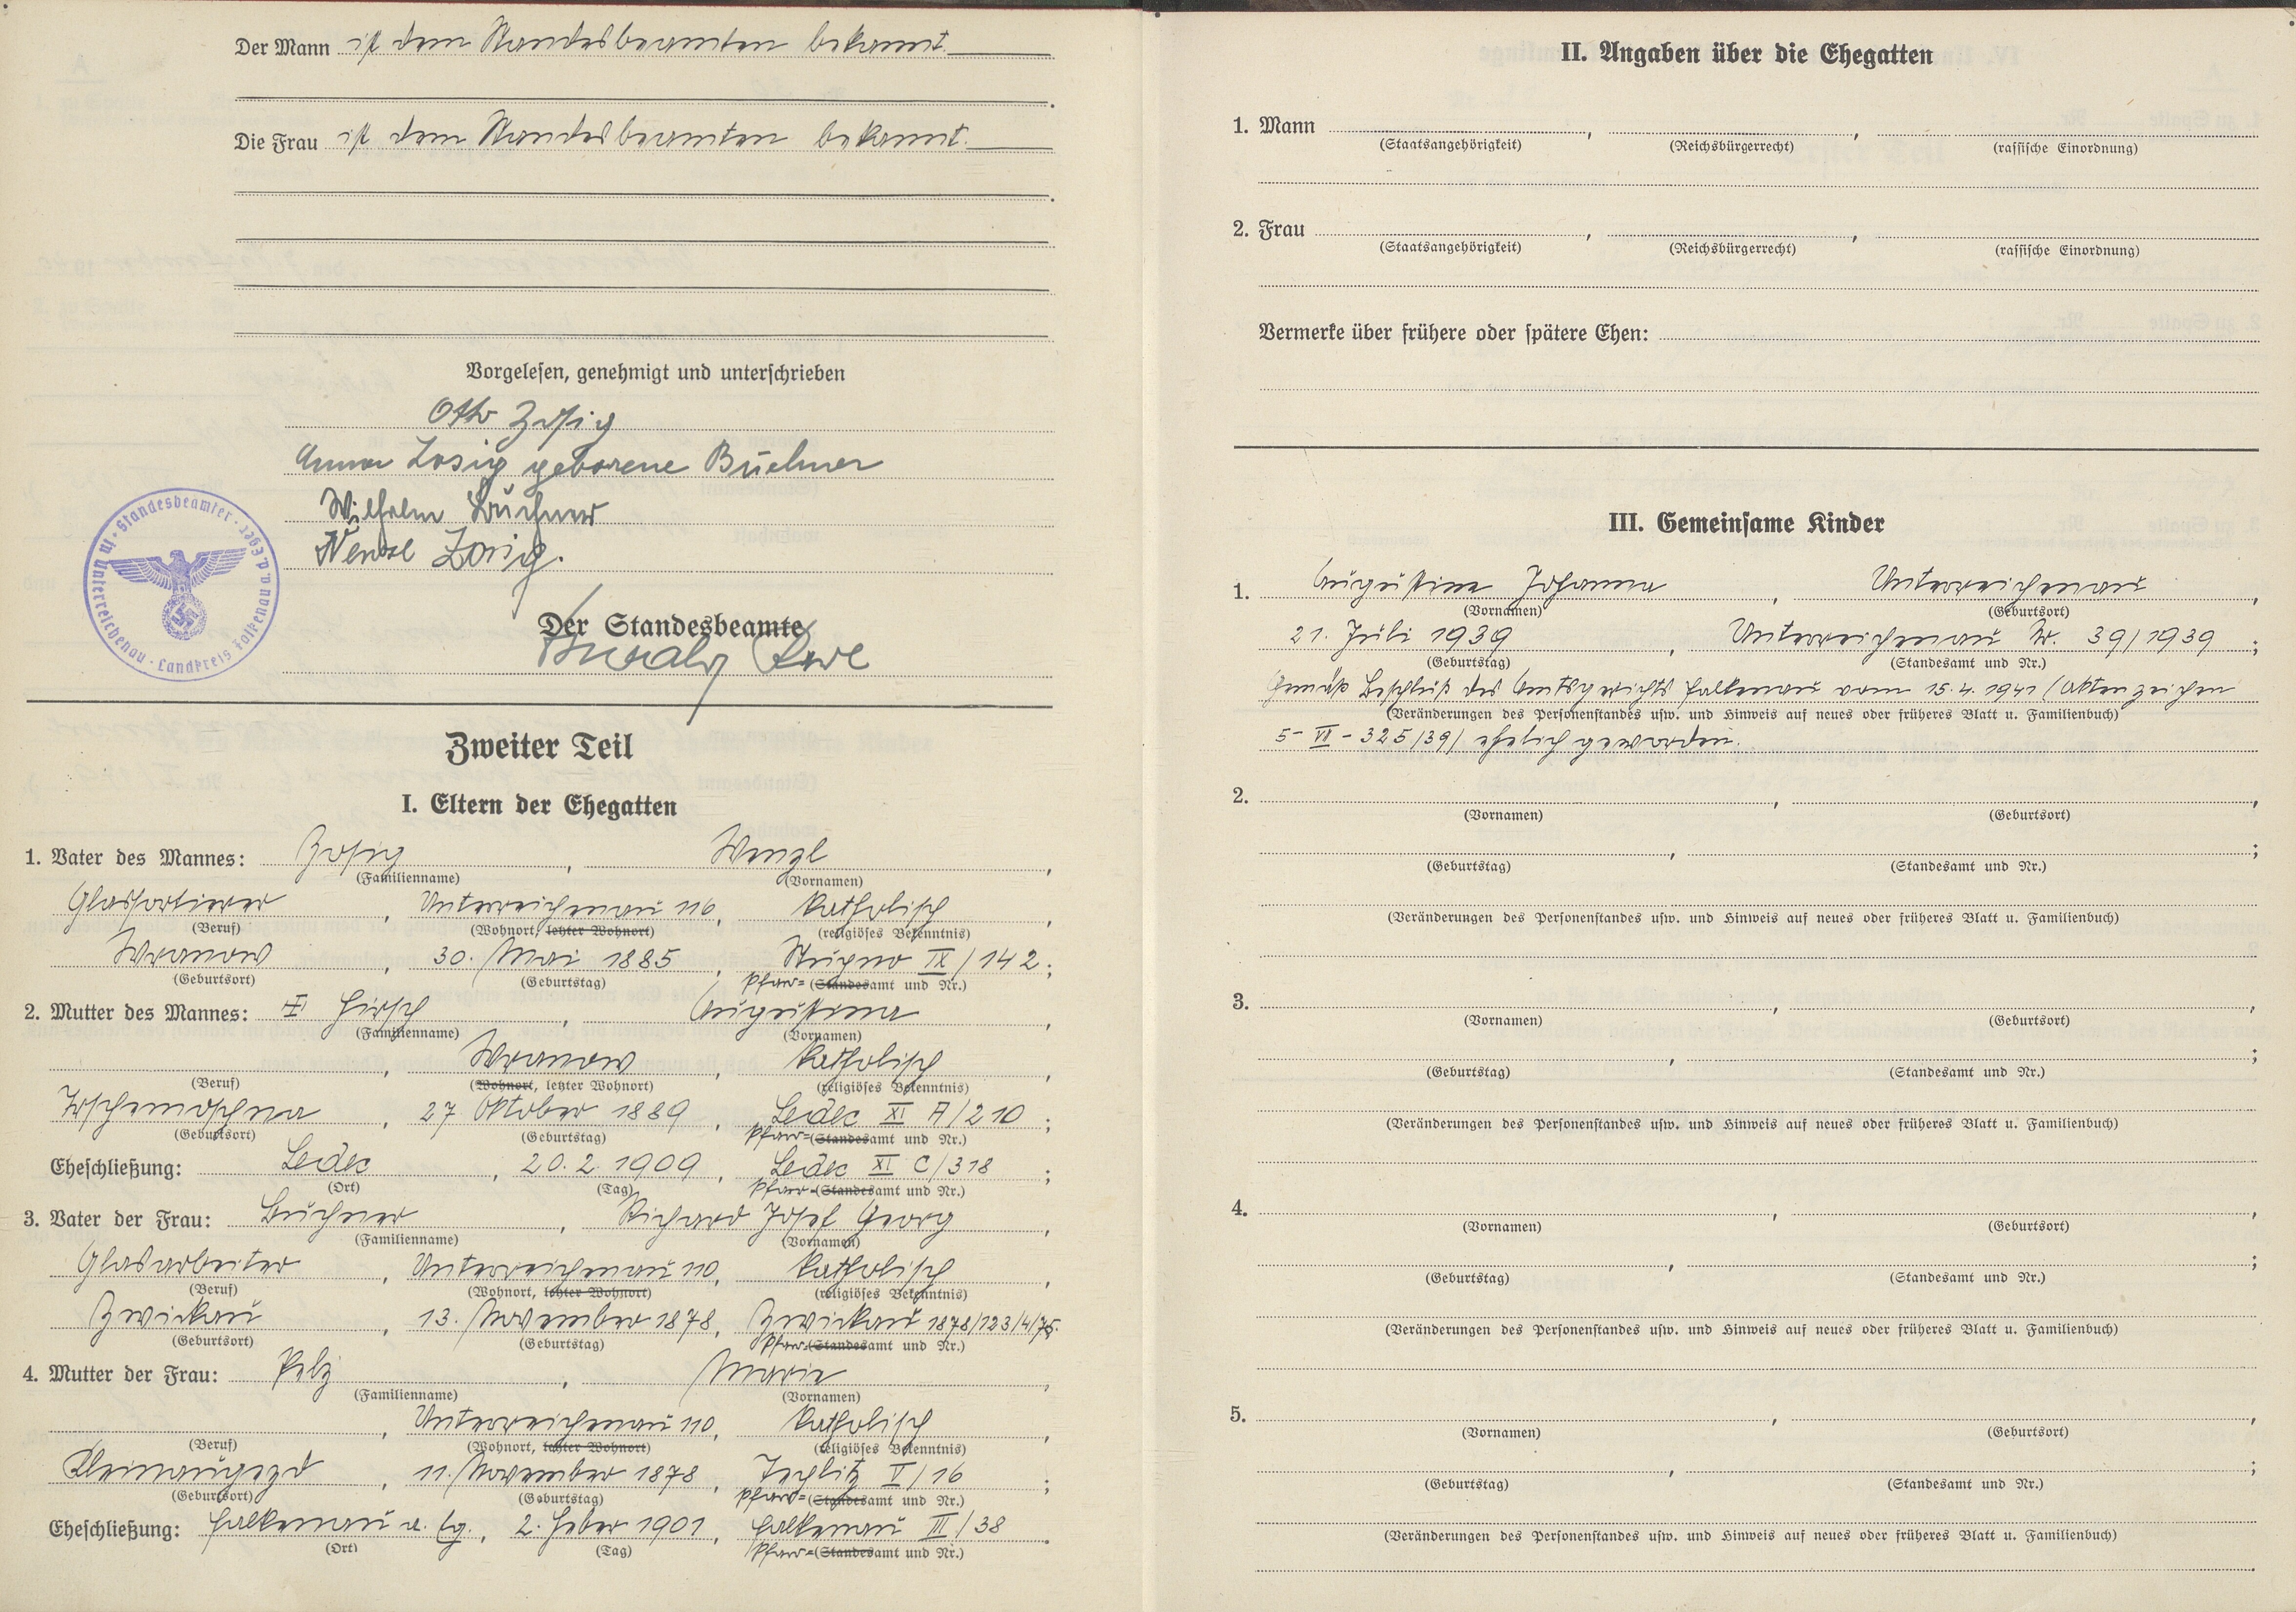 Der Mann ist dem Standesbeamten bekannt.
Die Frau ist dem Standesbeamten bekannt.
Vorgelesen, genehmigt und unterschrieben
Otto Zosig
Anna Zosig geborene Büchner
Wilhelm Büchner
Wenzl Zosig.
Standesbeamter · in Unterreichenau · Landkreis Falkenau a. d. Eger
Der Standesbeamte
Zweiter Teil
I. Eltern der Ehegatten
1. Vater des Mannes: Zosig, Wenzl,
(Familienname) (Vornamen)
Glassortierer, Unterreichenau 116, katholisch,
(Beruf) (Wohnort, letzter Wohnort) (religiöses Bekenntnis)
Wranow, 30. Mai 1885, IX/142;
(Geburtsort) (Geburtstag) Pfarr= (Standesamt und Nr.)
2. Mutter des Mannes: Hirsch, Augustina,
(Familienname) (Vornamen)
, Wranow, katholisch,
(Beruf) (Wohnort, letzter Wohnort) (religiöses Bekenntnis)
Tschemoschna, 27 Oktober 1889, Ledec XI A/210;
(Geburtsort) (Geburtstag) Pfarr= (Standesamt und Nr.)
Eheschließung: Ledec, 20. 2. 1909, Ledec XI C/318;
(Ort) (Tag) Pfarr= (Standesamt und Nr.)
3. Vater der Frau: Büchner, Richard Josef Georg,
(Familienname) (Vornamen)
Glasarbeiter, Unterreichenau 110, katholisch,
(Beruf) (Wohnort, letzter Wohnort) (religiöses Bekenntnis)
Zwickau, 13. November 1878, Zwickau 1878/123/4/75.
(Geburtsort) (Geburtstag) Pfarr= (Standesamt und Nr.)
4. Mutter der Frau: Pelz, Marie,
(Familienname) (Vornamen)
, Unterreichenau 110, katholisch,
(Beruf) (Wohnort, letzter Wohnort) (religiöses Bekenntnis)
Kleinaugezd, 11. November 1878, V/16;
(Geburtsort) (Geburtstag) Pfarr= (Standesamt und Nr.)
Eheschließung: Falkenau a. Eg., 2. Feber 1901, Falkenau III/38.
(Ort) (Tag) Pfarr= (Standesamt und Nr.)
II. Angaben über die Ehegatten
1. Mann , ,
(Staatsangehörigkeit) (Reichsbürgerrecht) (rassische Einordnung)
2. Frau , ,
(Staatsangehörigkeit) (Reichsbürgerrecht) (rassische Einordnung)
Vermerke über frühere oder spätere Ehen:
III. Gemeinsame Kinder
1. Augustine Johanna, Unterreichenau,
(Vornamen) (Geburtsort)
21. Juli 1939, Unterreichenau Nr. 39/1939;
(Geburtstag) (Standesamt und Nr.)
Gemäß Beschluß des Amtsgerichts Falkenau vom 15. 4. 1941 (Aktenzeichen
(Veränderungen des Personenstandes usw. und Hinweis auf neues oder früheres Blatt u. Familienbuch)
5 - VII - 325/39) ehelich geworden.
2. , ,
(Vornamen) (Geburtsort)
, ;
(Geburtstag) (Standesamt und Nr.)
(Veränderungen des Personenstandes usw. und Hinweis auf neues oder früheres Blatt u. Familienbuch)
3. , ,
(Vornamen) (Geburtsort)
, ;
(Geburtstag) (Standesamt und Nr.)
(Veränderungen des Personenstandes usw. und Hinweis auf neues oder früheres Blatt u. Familienbuch)
4. , ,
(Vornamen) (Geburtsort)
, ;
(Geburtstag) (Standesamt und Nr.)
(Veränderungen des Personenstandes usw. und Hinweis auf neues oder früheres Blatt u. Familienbuch)
5. , ,
(Vornamen) (Geburtsort)
, ;
(Geburtstag) (Standesamt und Nr.)
(Veränderungen des Personenstandes usw. und Hinweis auf neues oder früheres Blatt u. Familienbuch)